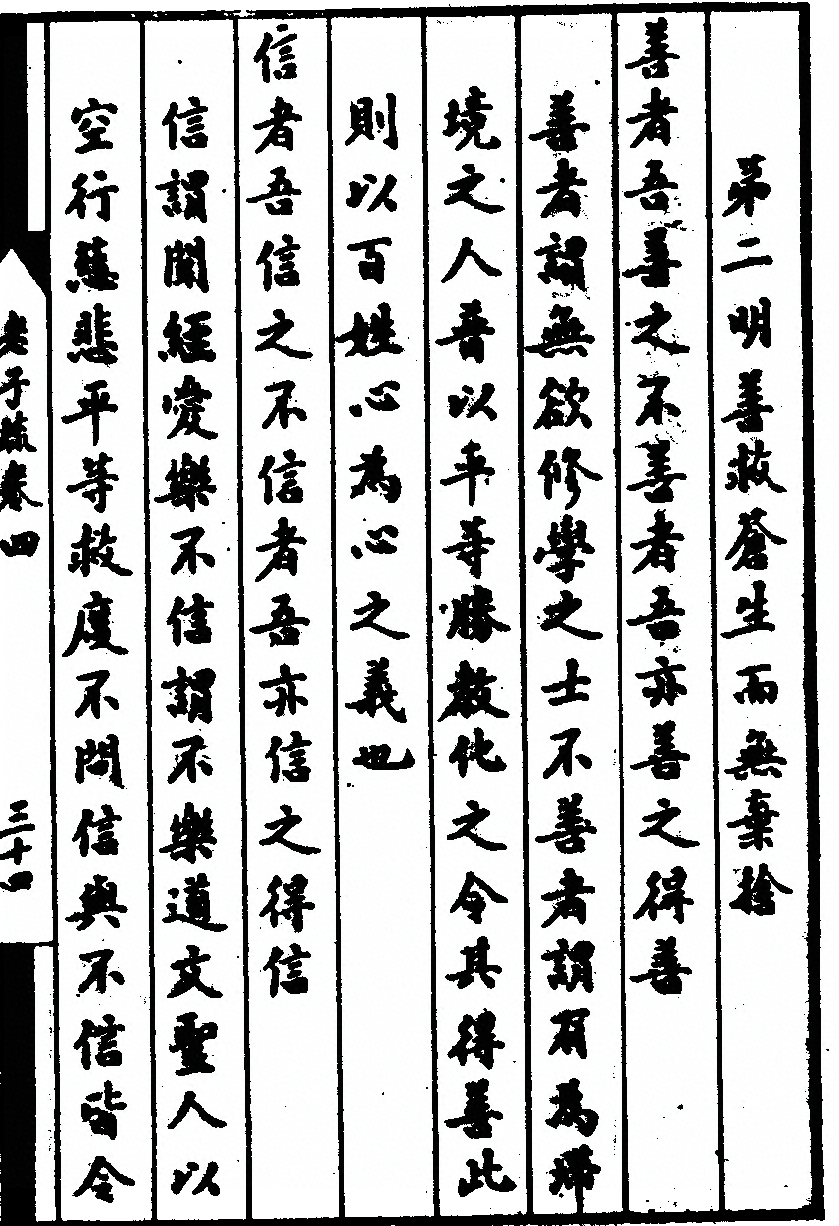 第二明善救蒼生而無棄捨
善者吾善之不善者吾亦善之得善
善者謂無欲修學之士不善者謂有為滯
境之人普以平等勝教化之令其得善此
則以百姓心為心之義也
信者吾信之不信者吾亦信之得信
信謂聞經愛樂不信謂不樂道文聖人以
空行慈悲平等救度不問信與不信皆令
老子疏卷四
三十四